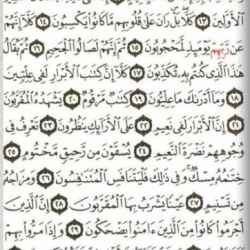 ٱلْأَوَّلِينَ ١٣ كَلَّا بَلْ رَانَ عَلَىٰ قُلُوبِهِم مَّا كَانُوا۟ يَكْسِبُونَ ١٤ كَلَّا إِنَّهُمْ
عَن رَّبِّهِمْ يَوْمَئِذٍ لَّمَحْجُوبُونَ ١٥ ثُمَّ إِنَّهُمْ لَصَالُوا۟ ٱلْجَحِيمِ ١٦ ثُمَّ يُقَالُ
هَٰذَا ٱلَّذِى كُنتُم بِهِۦ تُكَذِّبُونَ ١٧ كَلَّا إِنَّ كِتَٰبَ ٱلْأَبْرَارِ لَفِى عِلِّيِّينَ
١٨ وَمَآ أَدْرَىٰكَ مَا عِلِّيُّونَ ١٩ كِتَٰبٌ مَّرْقُومٌ ٢٠ يَشْهَدُهُ ٱلْمُقَرَّبُونَ
٢١ إِنَّ ٱلْأَبْرَارَ لَفِى نَعِيمٍ ٢٢ عَلَى ٱلْأَرَآئِكِ يَنظُرُونَ ٢٣ تَعْرِفُ فِى
وُجُوهِهِمْ نَضْرَةَ ٱلنَّعِيمِ ٢٤ يُسْقَوْنَ مِن رَّحِيقٍ مَّخْتُومٍ ٢٥
خِتَٰمُهُۥ مِسْكٌ وَفِى ذَٰلِكَ فَلْيَتَنَافَسِ ٱلْمُتَنَٰفِسُونَ ٢٦ وَمِزَاجُهُۥ
مِن تَسْنِيمٍ ٢٧ عَيْنًا يَشْرَبُ بِهَا ٱلْمُقَرَّبُونَ ٢٨ إِنَّ ٱلَّذِينَ
أَجْرَمُوا۟ كَانُوا۟ مِنَ ٱلَّذِينَ ءَامَنُوا۟ يَضْحَكُونَ ٢٩ وَإِذَا مَرُّوا۟ بِهِمْ